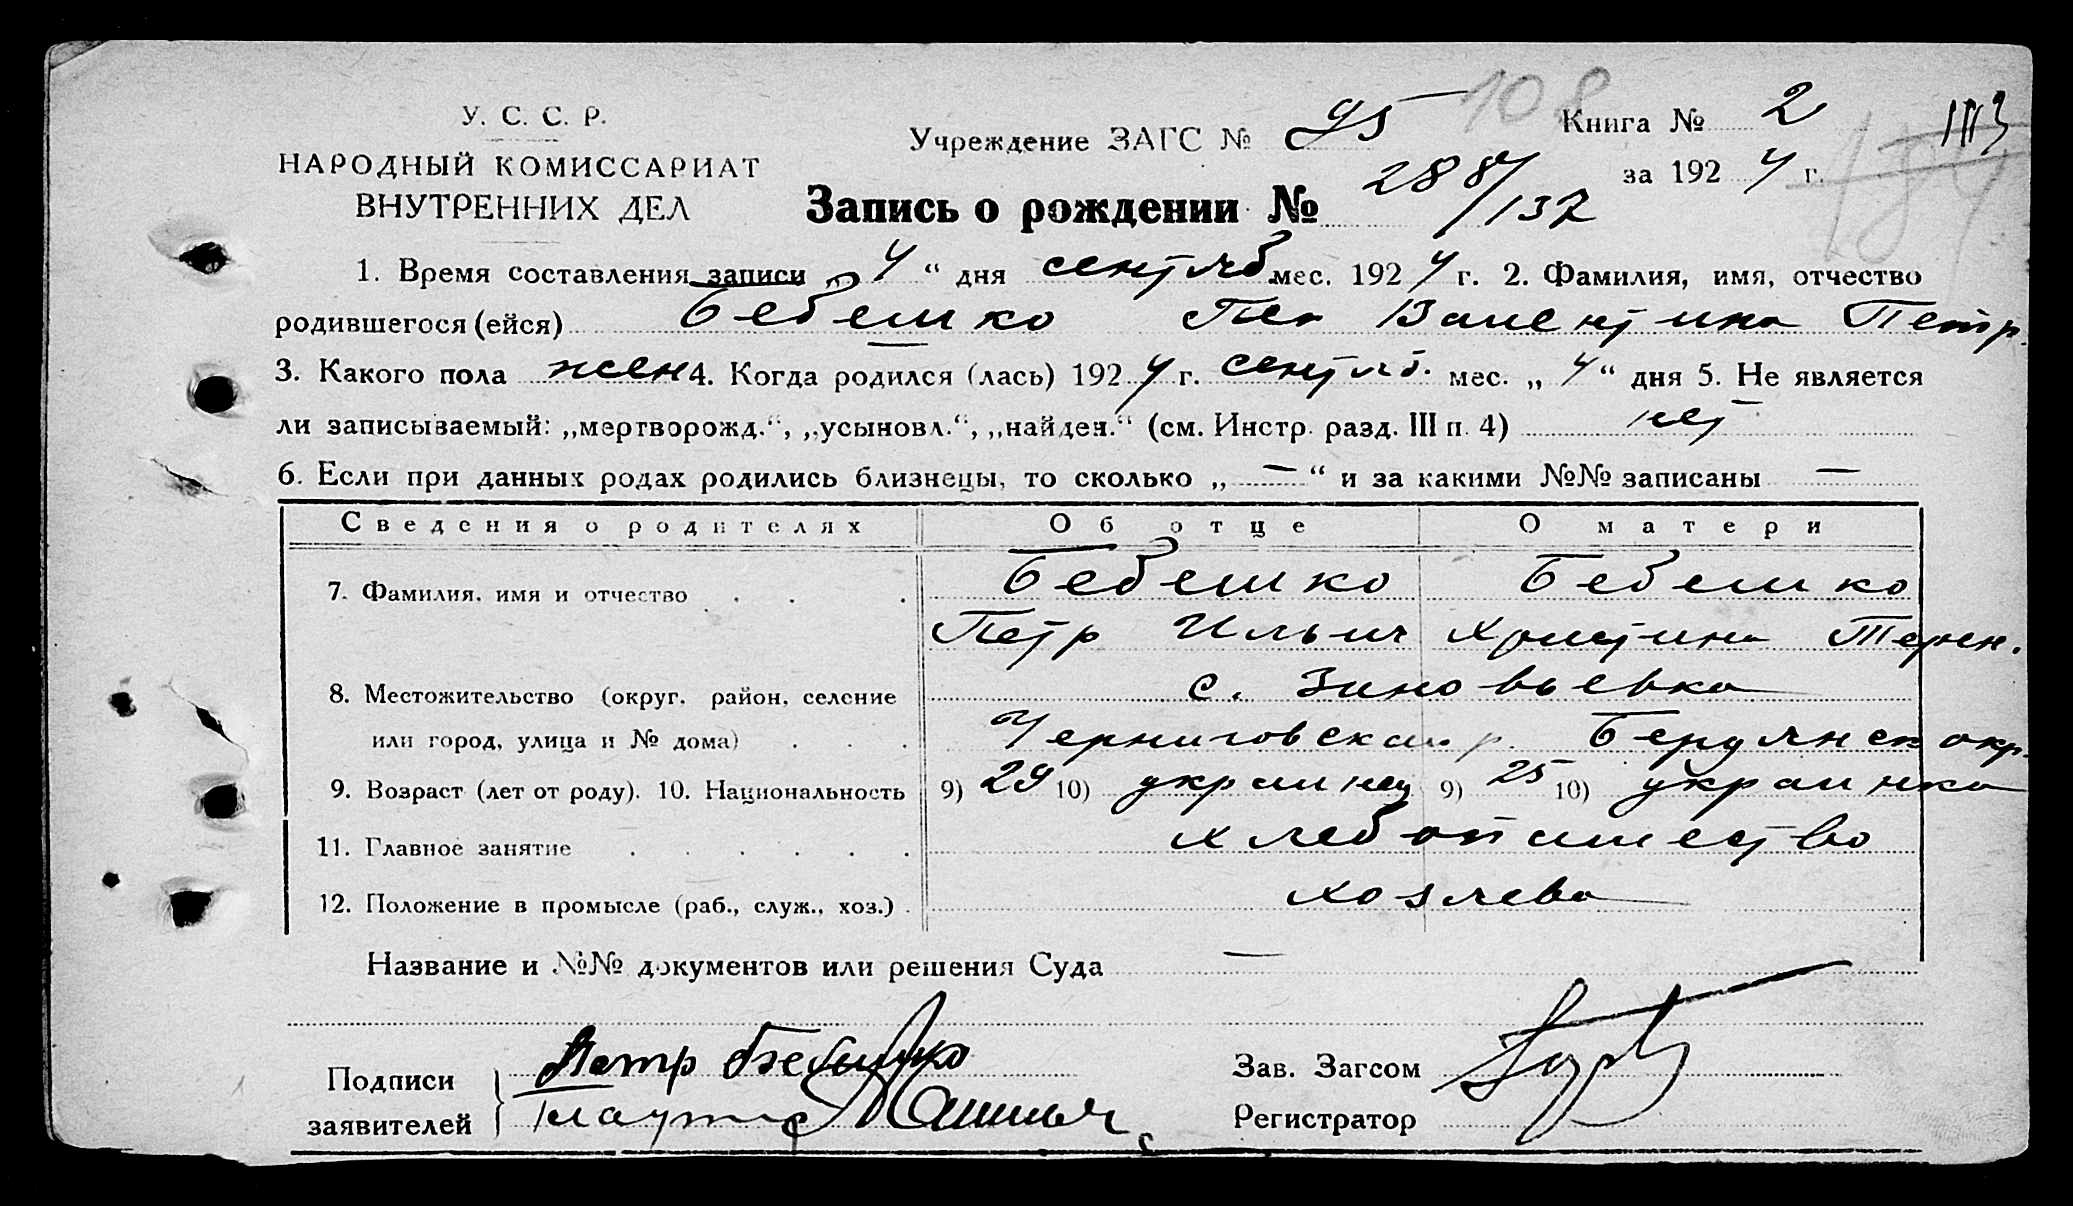 У. С. С. Р.
НАРОДНЫЙ КОМИССАРИАТ
ВНУТРЕННИХ ДЕЛ
Учреждение ЗАГС № 95
108
Книга № 2
за 1924 г.
184
Запись о рождении № 288/132
1. Время составления записи „4“ дня сентяб мес. 1924 г. 2. Фамилия, имя, отчество
родившегося (ейся) Бебешко Валентина Петр.
3. Какого пола жен 4. Когда родился (лась) 1924 г. сентяб. мес. „4“ дня 5. Не является
ли записываемый: „мертворожд.“, „усыновл.“, „найден.“ (см. Инстр. разд. III п. 4) нет
6. Если при данных родах родились близнецы, то сколько „—“ и за какими №№ записаны —
Сведения о родителях Об отце О матери
7. Фамилия, имя и отчество Бебешко Бебешко
Петр Ильич Христина Терен.
8. Местожительство (округ, район, селение с. Зиновьевка
или город, улица и № дома) Черниговска р. Бердянск окр.
9. Возраст (лет от роду). 10. Национальность 9) 29 10) украинец 9) 25 10) украинка
11. Главное занятие хлебопашество
12. Положение в промысле (раб., служ., хоз.) хозяева
Название и №№ документов или решения Суда —
Подписи Петр Бебешко Зав. Загсом
заявителей Регистратор